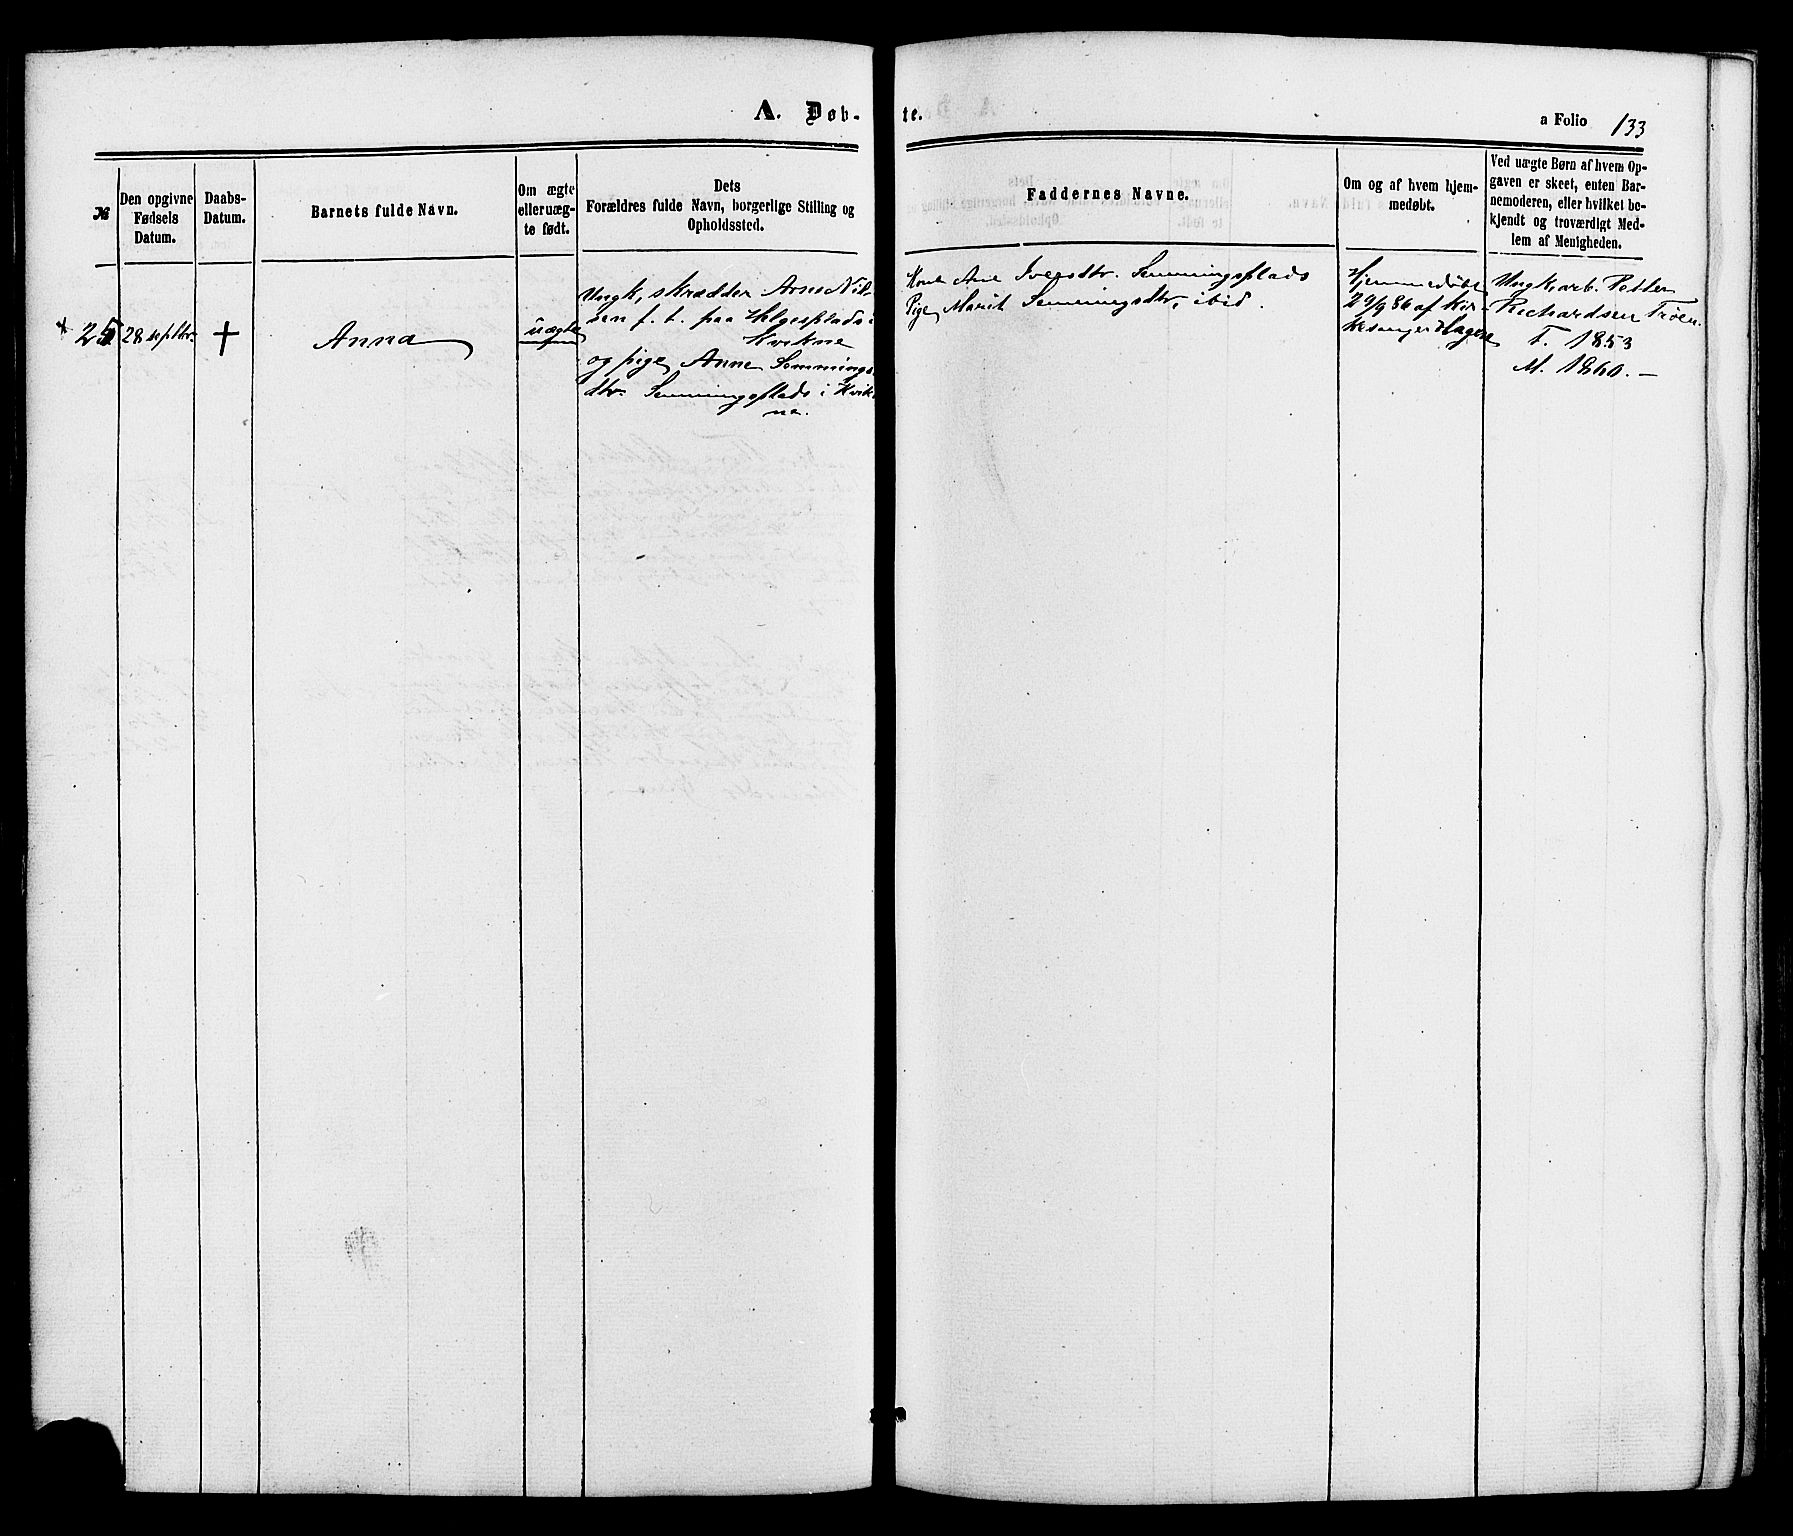 A. Døb- te.
a Folio 133
№
Den opgivne
Fødsels
Datum.
Daabs-
Datum.
Barnets fulde Navn.
Om ægte
eller uæg-
te født.
Dets
Forældres fulde Navn, borgerlige Stilling og
Opholdssted.
Faddernes Navne.
Om og af hvem hjem-
medøbt.
Ved uægte Børn af hvem Op-
gaven er skeet, enten Bar-
nemoderen, eller hvilket be-
kjendt og troværdigt Med-
lem af Menigheden.
* 25
28 septbr.
†
Anna
uægte
Ungk, skrædder Arne Nil-
sen f. t. paa Helgesplads i
Kvikne
og pige Anne Semmings
dtr. Semmingsplads i Kvik
ne.
Kone Ane Iversdtr. Semmingsplads
Pige Marit Semmingsdtr, ibid.
Hjemmedøbt
29/9 86 af Kir-
kesanger Hagen
Ungkarl. Petter
Richardsen Trøen.
F. 1853
M. 1860. —